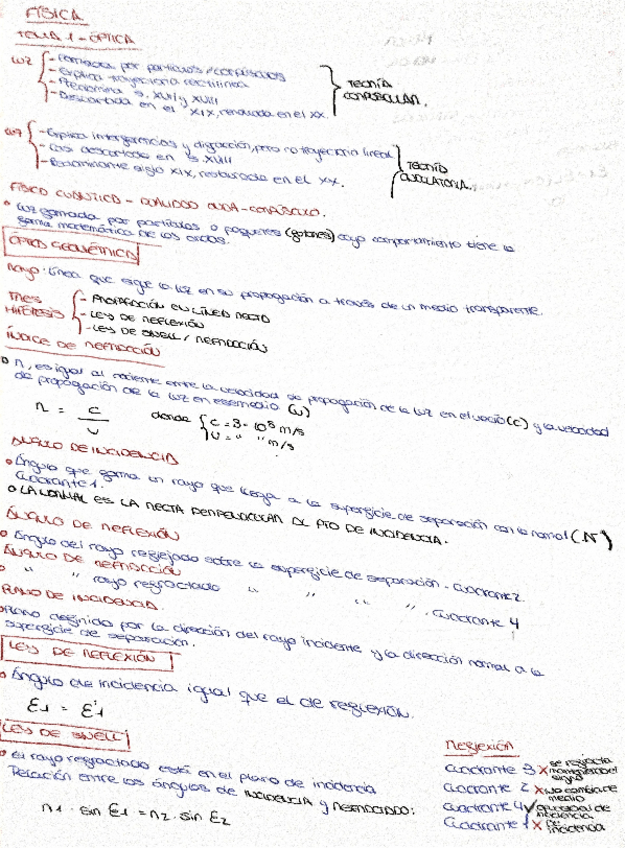 FÍSICA
TEMA 1 - ÓPTICA
luz
- Formada por partículas / corpúsculos
- Explica trayectoria rectilínea
- Predomina s. XVII y XVIII
- Descartada en el XIX, renovada en el XX
TEORÍA CORPUSCULAR.
- Explica interferencias y difracción, pero no trayectoria lineal
- Casi descartada en s. XVIII
- Predominante siglo XIX, restaurada en el XX.
TEORÍA ONDULATORIA.
FÍSICO CUÁNTICO - DUALIDAD ONDA-CORPÚSCULO.
• luz formada por partículas o paquetes (fotones) cuyo comportamiento tiene la
forma matemática de las ondas.
ÓPTICA GEOMÉTRICA
Rayo: línea que sigue la luz en su propagación a través de un medio transparente.
TRES HIPÓTESIS
- PROPAGACIÓN EN LÍNEA RECTA
- LEY DE REFLEXIÓN
- LEY DE SNELL / REFRACCIÓN
ÍNDICE DE REFRACCIÓN
• n, es igual al cociente entre la velocidad de propagación de la luz en el vacío (c) y la velocidad
de propagación de la luz en ese medio (v)
n = c / v donde { c = 3 · 10⁸ m/s
v = " " m/s
ÁNGULO DE INCIDENCIA
• Ángulo que forma un rayo que llega a la superficie de separación con la normal (N)
Cuadrante 1.
• LA NORMAL ES LA RECTA PERPENDICULAR AL PTO DE INCIDENCIA.
ÁNGULO DE REFLEXIÓN
• Ángulo del rayo reflejado sobre la superficie de separación - Cuadrante 2.
ÁNGULO DE REFRACCIÓN
• " " rayo refractado " " " " . Cuadrante 4
PLANO DE INCIDENCIA.
• Plano definido por la dirección del rayo incidente y la dirección normal a la
superficie de separación.
LEY DE REFLEXIÓN
• Ángulo de incidencia igual que el de reflexión.
Ɛ1 = Ɛ'1
LEY DE SNELL
• El rayo refractado está en el plano de incidencia
Relación entre los ángulos de INCIDENCIA y REFRACTADO:
n1 · sin Ɛ1 = n2 · sin Ɛ2
Reflexión
Cuadrante 3 X se
Cuadrante 2 X no cambia de medio
Cuadrante 4 ✓ de incidencia
Cuadrante 1 X de incidencia